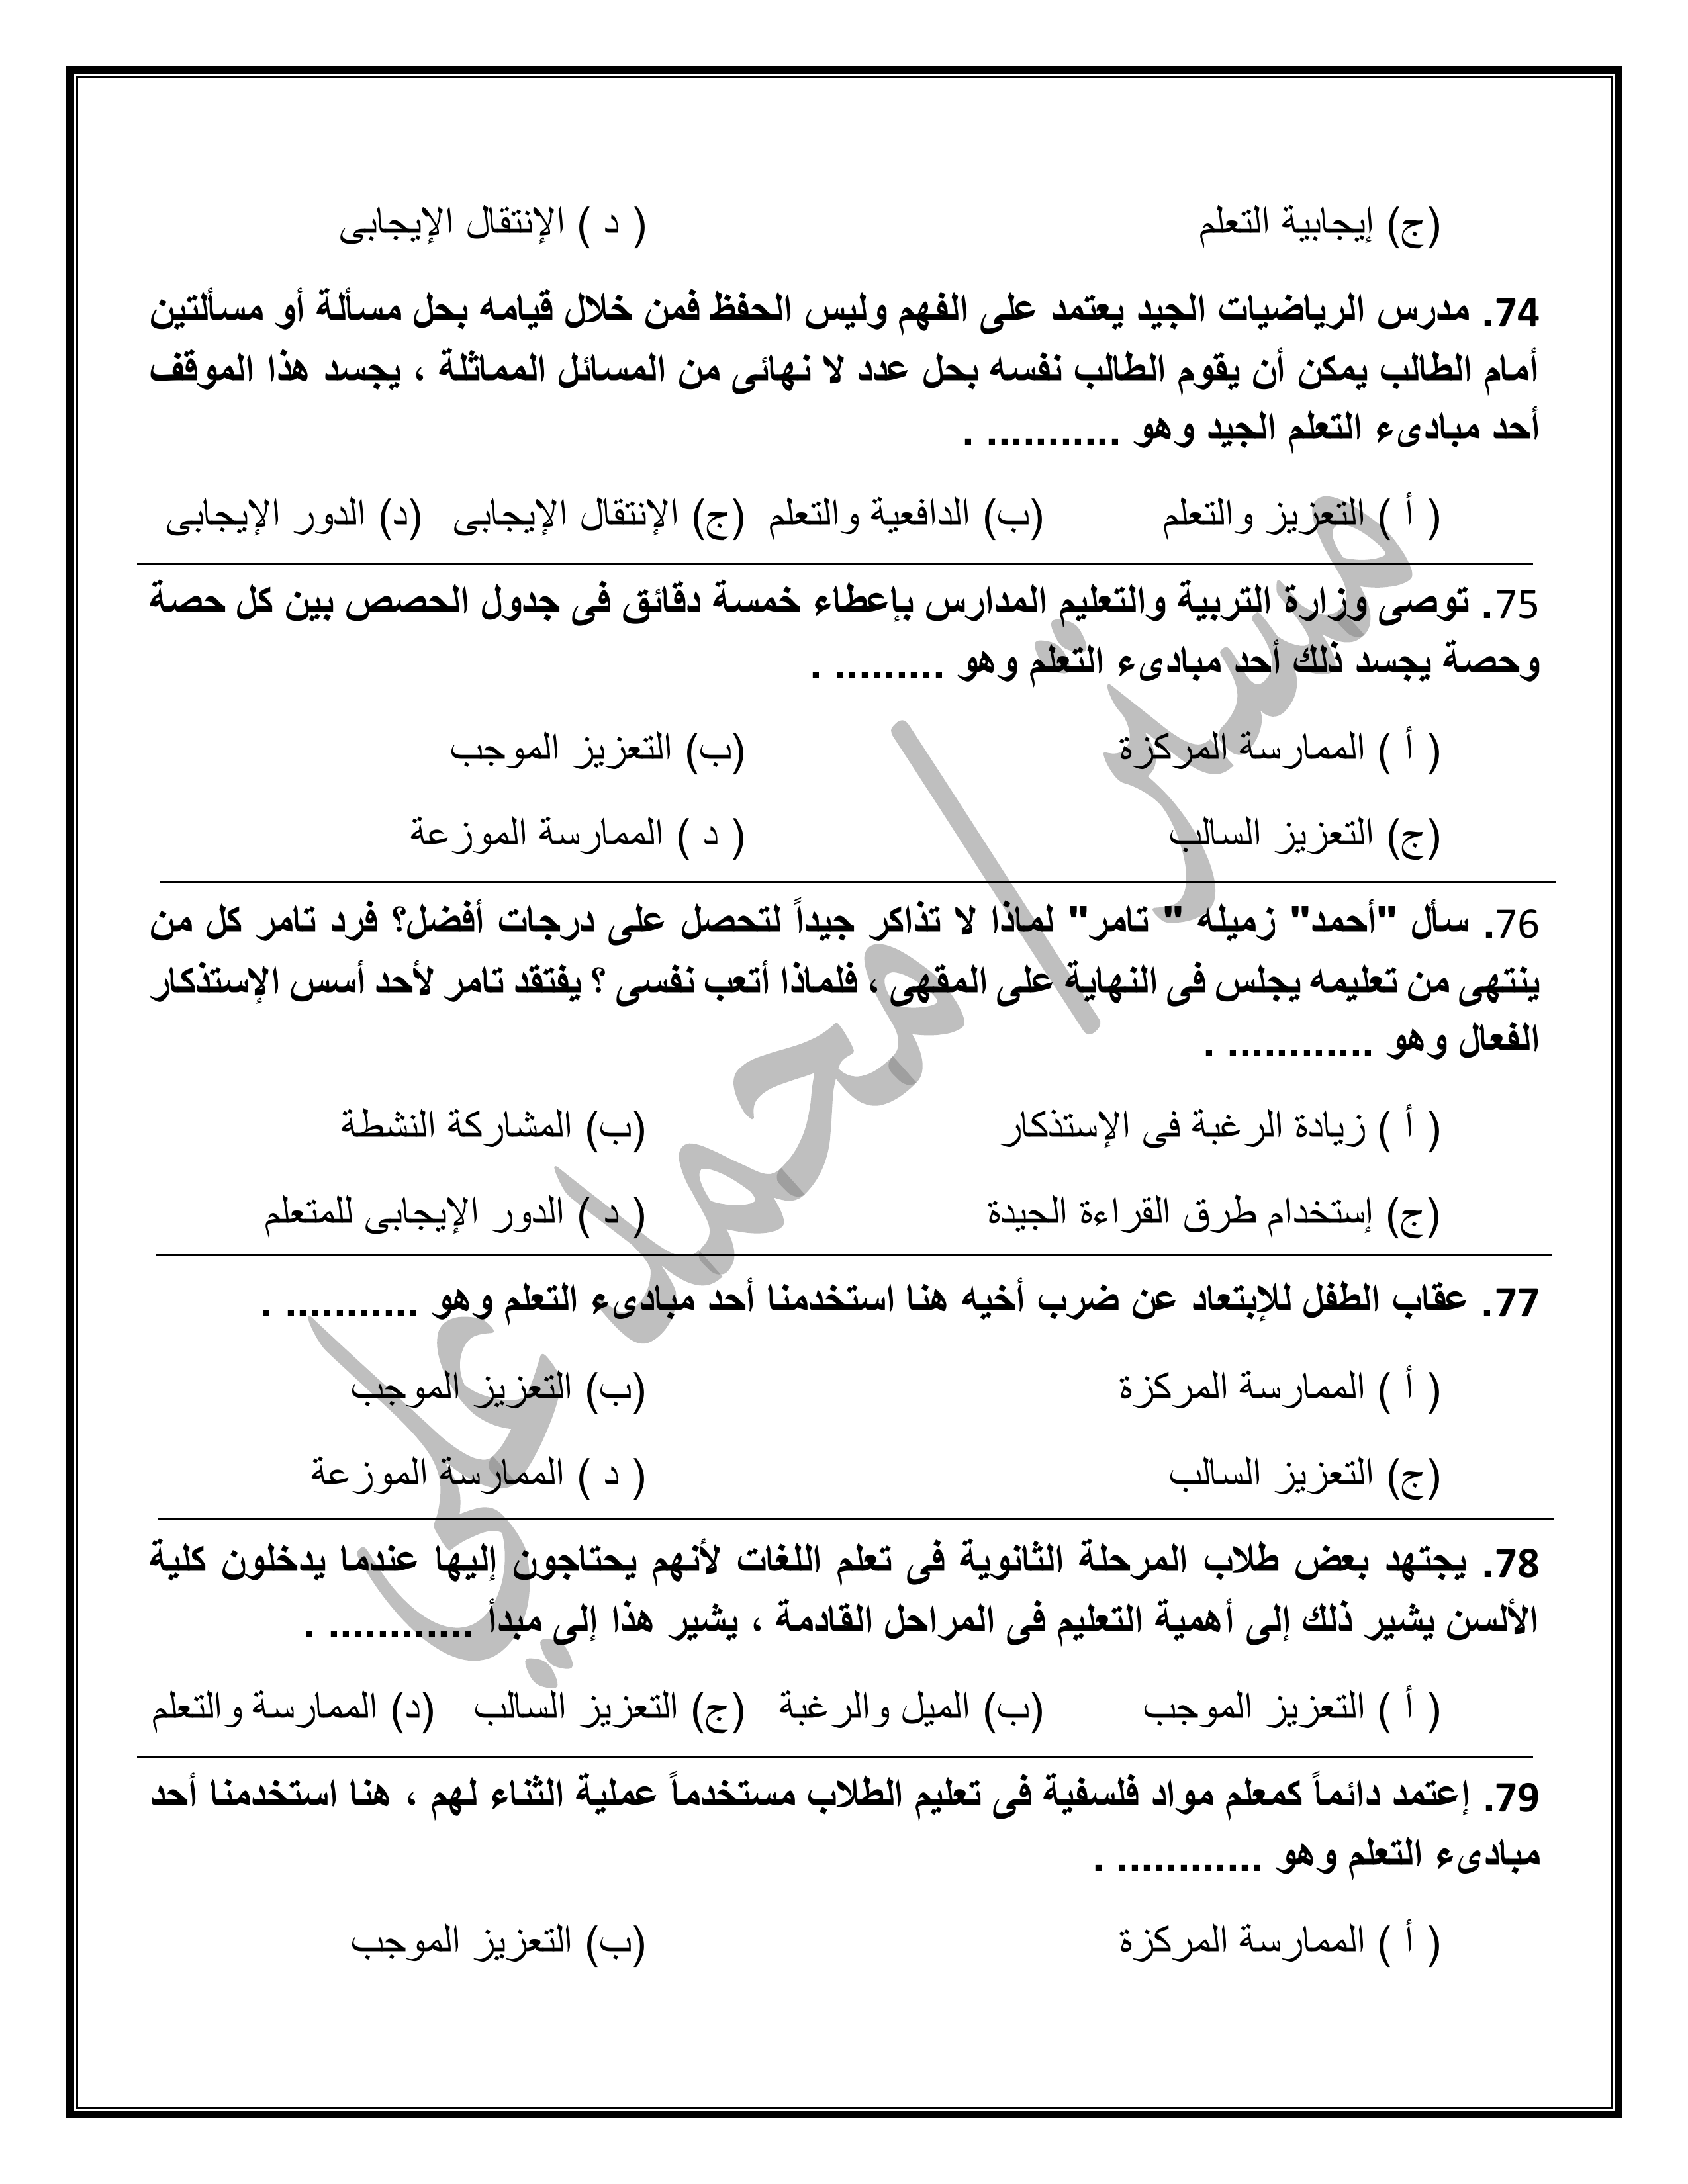 (ج) إيجابية التعلم ( د ) الإنتقال الإيجابى
74. مدرس الرياضيات الجيد يعتمد على الفهم وليس الحفظ فمن خلال قيامه بحل مسألة أو مسألتين
أمام الطالب يمكن أن يقوم الطالب نفسه بحل عدد لا نهائى من المسائل المماثلة ، يجسد هذا الموقف
أحد مبادىء التعلم الجيد وهو ........... .
( أ ) التعزيز والتعلم (ب) الدافعية والتعلم (ج) الإنتقال الإيجابى (د) الدور الإيجابى
75. توصى وزارة التربية والتعليم المدارس بإعطاء خمسة دقائق فى جدول الحصص بين كل حصة
وحصة يجسد ذلك أحد مبادىء التعلم وهو ......... .
( أ ) الممارسة المركزة (ب) التعزيز الموجب
(ج) التعزيز السالب ( د ) الممارسة الموزعة
76. سأل "أحمد" زميله " تامر" لماذا لا تذاكر جيداً لتحصل على درجات أفضل؟ فرد تامر كل من
ينتهى من تعليمه يجلس فى النهاية على المقهى ، فلماذا أتعب نفسى ؟ يفتقد تامر لأحد أسس الإستذكار
الفعال وهو ............ .
( أ ) زيادة الرغبة فى الإستذكار (ب) المشاركة النشطة
(ج) إستخدام طرق القراءة الجيدة ( د ) الدور الإيجابى للمتعلم
77. عقاب الطفل للإبتعاد عن ضرب أخيه هنا استخدمنا أحد مبادىء التعلم وهو ........... .
( أ ) الممارسة المركزة (ب) التعزيز الموجب
(ج) التعزيز السالب ( د ) الممارسة الموزعة
78. يجتهد بعض طلاب المرحلة الثانوية فى تعلم اللغات لأنهم يحتاجون إليها عندما يدخلون كلية
الألسن يشير ذلك إلى أهمية التعليم فى المراحل القادمة ، يشير هذا إلى مبدأ ............ .
( أ ) التعزيز الموجب (ب) الميل والرغبة (ج) التعزيز السالب (د) الممارسة والتعلم
79. إعتمد دائماً كمعلم مواد فلسفية فى تعليم الطلاب مستخدماً عملية الثناء لهم ، هنا استخدمنا أحد
مبادىء التعلم وهو ............ .
( أ ) الممارسة المركزة (ب) التعزيز الموجب
مستر/ محمد علي